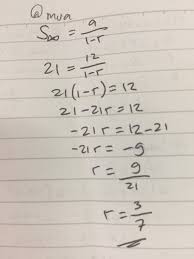 @mva
S∞ = a/1-r
21 = 12/1-r
21(1-r) = 12
21-21r = 12
-21r = 12-21
-21r = -9
r = 9/21
r = 3/7